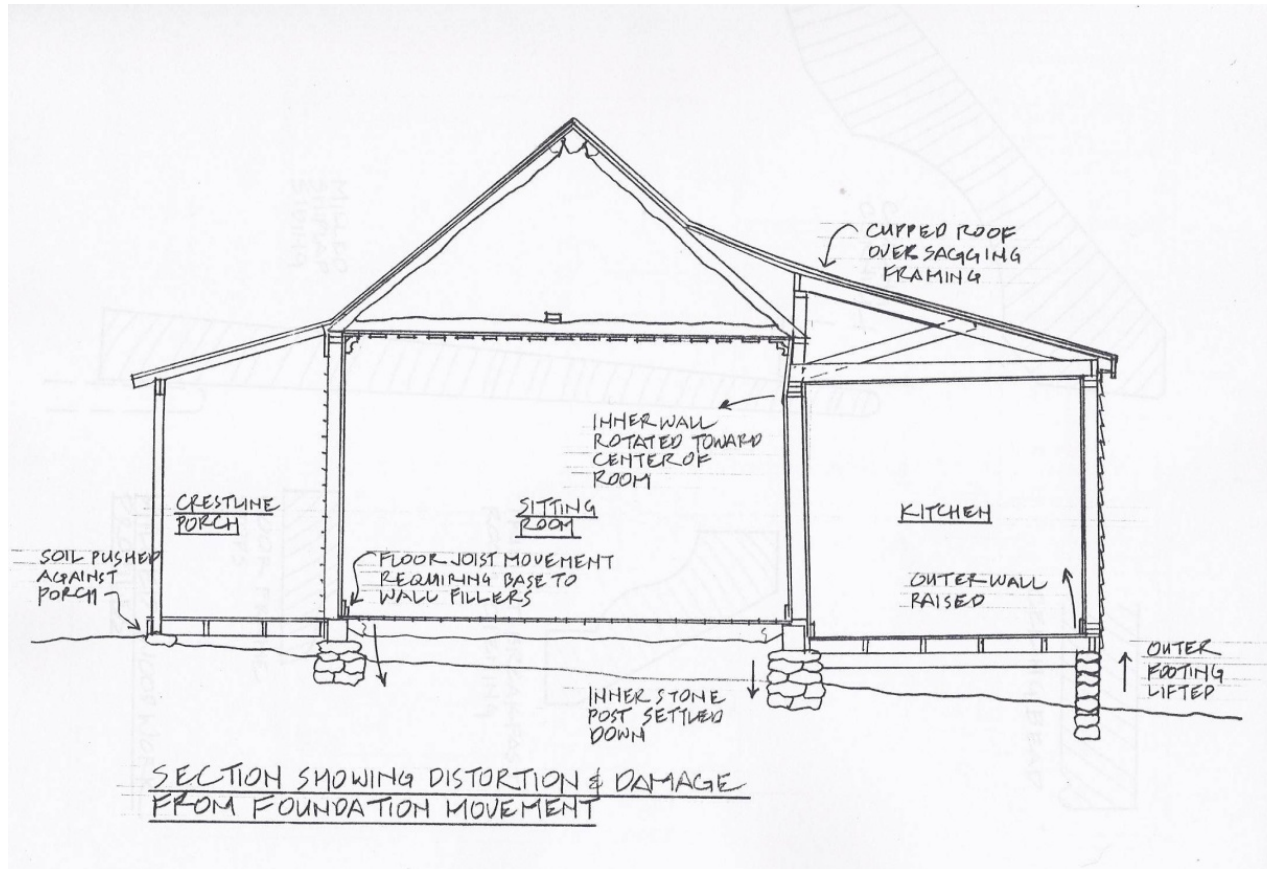 CUPPED ROOF
OVER SAGGING
FRAMING
INNER WALL
ROTATED TOWARD
CENTER OF
ROOM
CRESTLINE
PORCH
SITTING
ROOM
KITCHEN
SOIL PUSHED
AGAINST
PORCH
FLOOR JOIST MOVEMENT
REQUIRING BASE TO
WALL FILLERS
OUTER WALL
RAISED
INNER STONE
POST SETTLED
DOWN
OUTER
FOOTING
LIFTED
SECTION SHOWING DISTORTION & DAMAGE
FROM FOUNDATION MOVEMENT